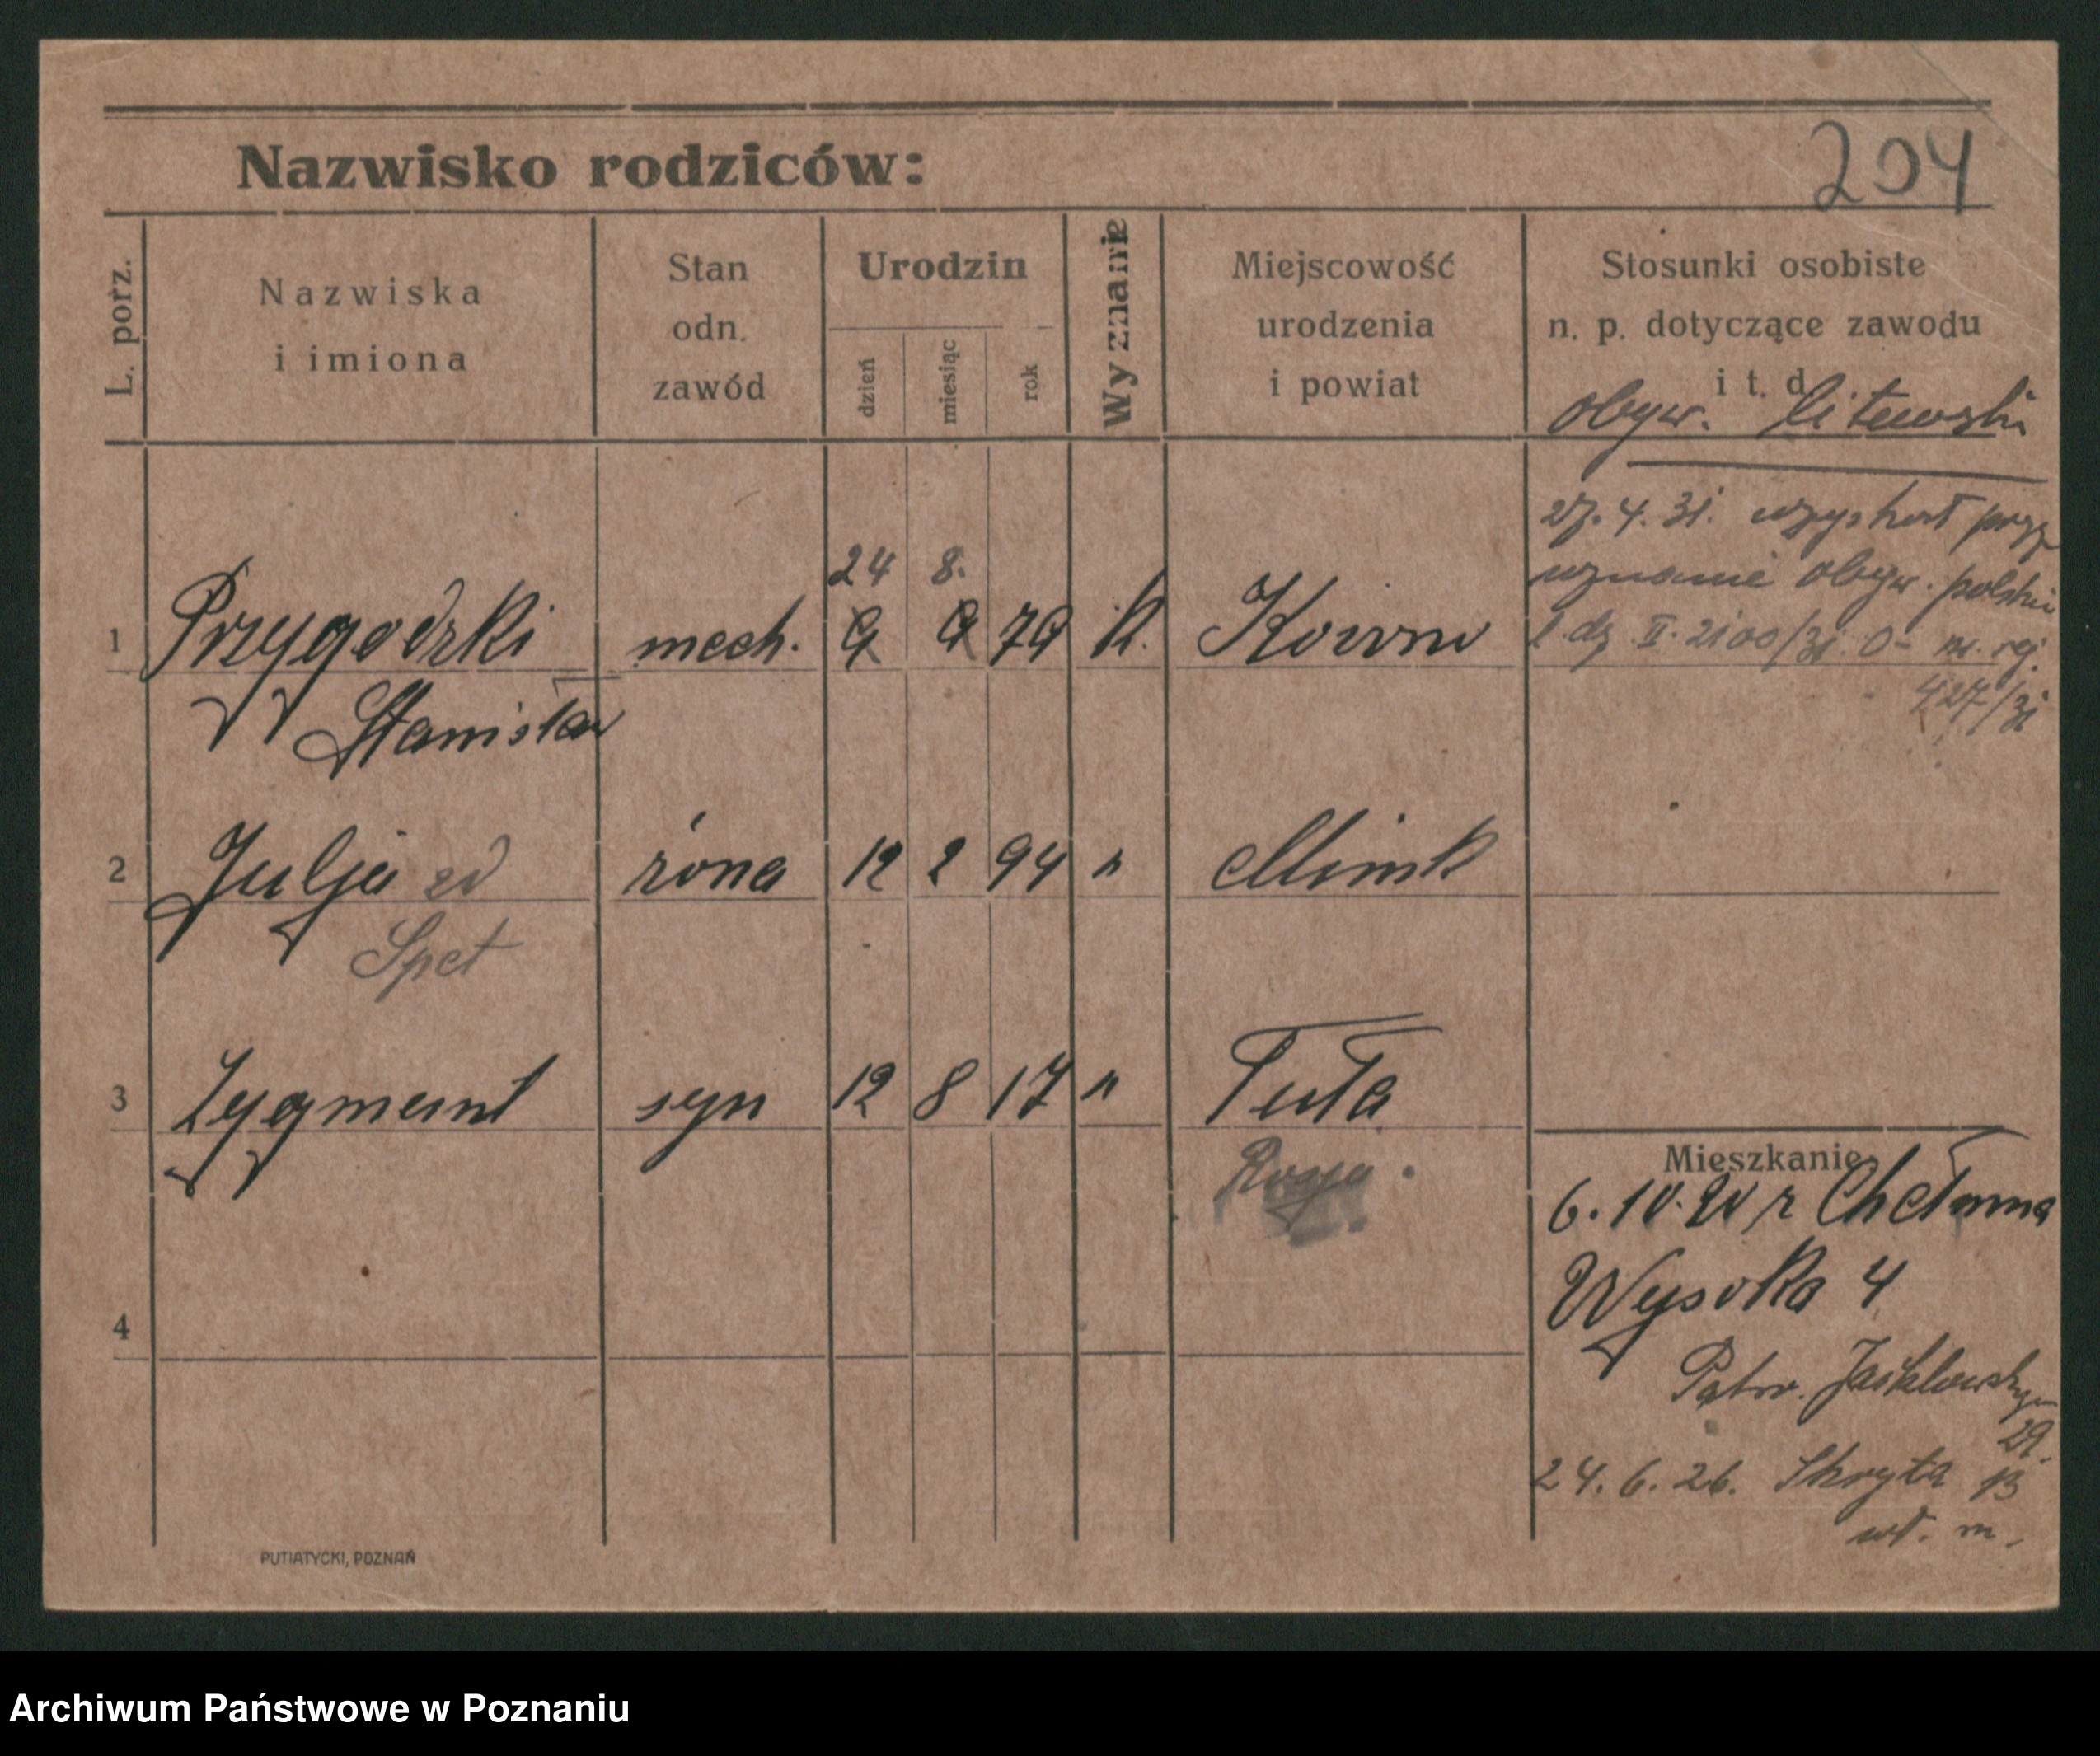 204
Nazwisko rodziców:
L. porz.
Nazwiska
i imiona
Stan
odn.
zawód
Urodzin
dzień
miesiąc
rok
Wyznanie
Miejscowość
urodzenia
i powiat
Stosunki osobiste
n. p. dotyczące zawodu
i t. d.
obyw. litewski
27. 4. 31. uzyskał przy
uznanie obyw. polskie
l. dz. II. 2100/31. O- nr. rej.
427/31
24 8.
1 Przygodzki mech. 9 9 79 k. Kowno
Stanisław
2 Julja zd żona 12 2 94 " Mińsk
Spet
3 Zygmunt syn 12 8 17 " Tuła
Rosja.
4
Mieszkanie
6. 10. 20 z Chełmna
Wysoka 4
Patro. Jackowskiego
29.
24. 6. 26. Skryta 13
wł. m.
PUTIATYCKI, POZNAŃ
Archiwum Państwowe w Poznaniu